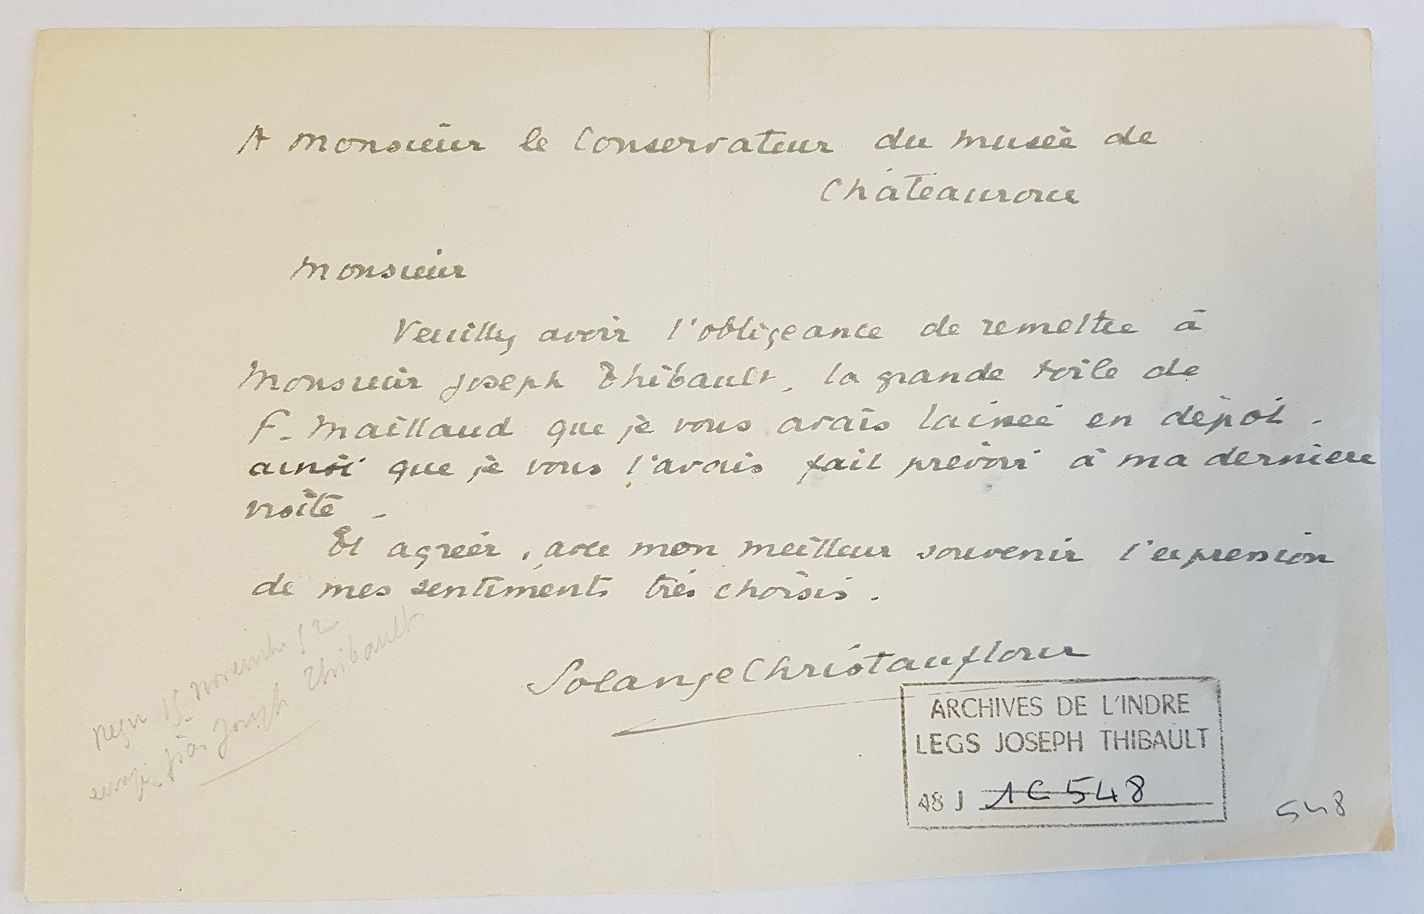 A Monsieur le Conservateur du musée de
Châteauroux
Monsieur
Veuillez avoir l'obligeance de remettre à
Monsieur Joseph Thibault, la grande toile de
F. Maillaud que je vous avais laissée en dépôt -
ainsi que je vous l'avais fait prévoir à ma dernière
visite -
Et agréer, avec mon meilleur souvenir l'expression
de mes sentiments très choisis.
Solange Christauflour
reçu 15 novembre 52
envoyé par Joseph Thibault
ARCHIVES DE L'INDRE
LEGS JOSEPH THIBAULT
48 J 1C 548
548